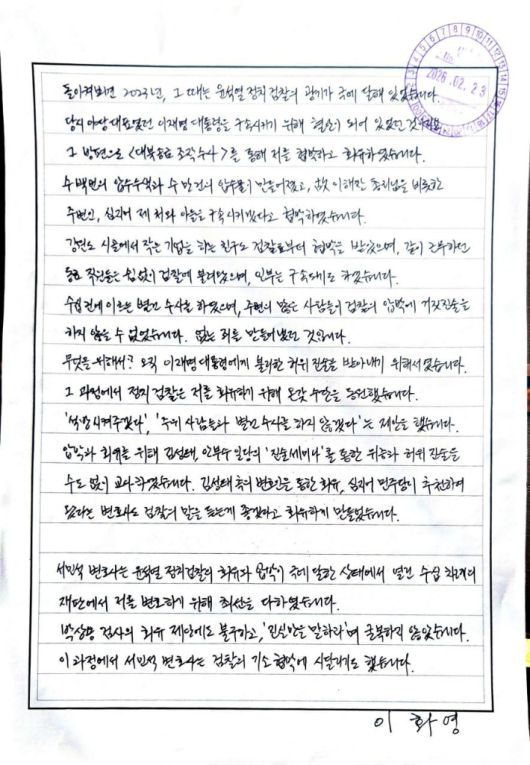 2026.02.23
돌아켜보면 2023년, 그 때는 윤석열 정치검찰의 광기가 극에 달해 있었습니다.
당시 야당 대표였던 이재명 대통령을 구속시키기 위해 혈안이 되어 있었던
그 방편으로 <대북송금 조작수사>를 통해 저를 협박하고 회유하였습니다.
수백번의 압수수색과 수만건의 압수물이 만들어졌고, 故 이해찬 총리님을 비롯한
주변인, 심지어 제 처와 아들을 구속시키겠다고 협박하였습니다.
강원도 시골에서 작은 기업을 하는 친구도 검찰로부터 협박을 받았으며, 같이 근무하던
동료 직원들은 쉼없이 검찰에 불려갔으며, 일부는 구속되기도 하였습니다.
수십건에 이르는 별건 수사를 하였으며, 주변의 많은 사람들이 검찰의 압박에 거짓진술을
하지 않을 수 없었습니다. 없는 죄를 만들어냈던 것입니다.
무엇을 위해서? 오직 이재명 대통령에게 불리한 허위 진술을 받아내기 위해서였습니다.
그 과정에서 정치 검찰은 저를 회유하기 위해 온갖 수단을 동원했습니다.
'석방시켜주겠다', '주위 사람들과 별건 수사를 하지 않겠다'는 제안을 했습니다.
압박과 회유를 위해 김성태, 안부수 일당의 '진술세미나'를 통한 위증과 허위 진술을
수도 없이 교사하였습니다. 김성태 측의 변호인을 통한 회유, 심지어 민주당이 추천하여
왔다는 변호사도 검찰의 말을 듣는게 좋겠다고 회유하게 만들었습니다.
서민석 변호사는 윤석열 정치검찰의 회유와 압박이 극에 달한 상태에서 열린 수십 차례의
재판에서 저를 변호하기 위해 최선을 다하였습니다.
박상용 검사의 회유 제안에도 불구하고, '진실만을 말하라'며 굴복하지 않았습니다.
이 과정에서 서민석 변호사는 검찰의 기소 협박에 시달리기도 했습니다.
이 화 영